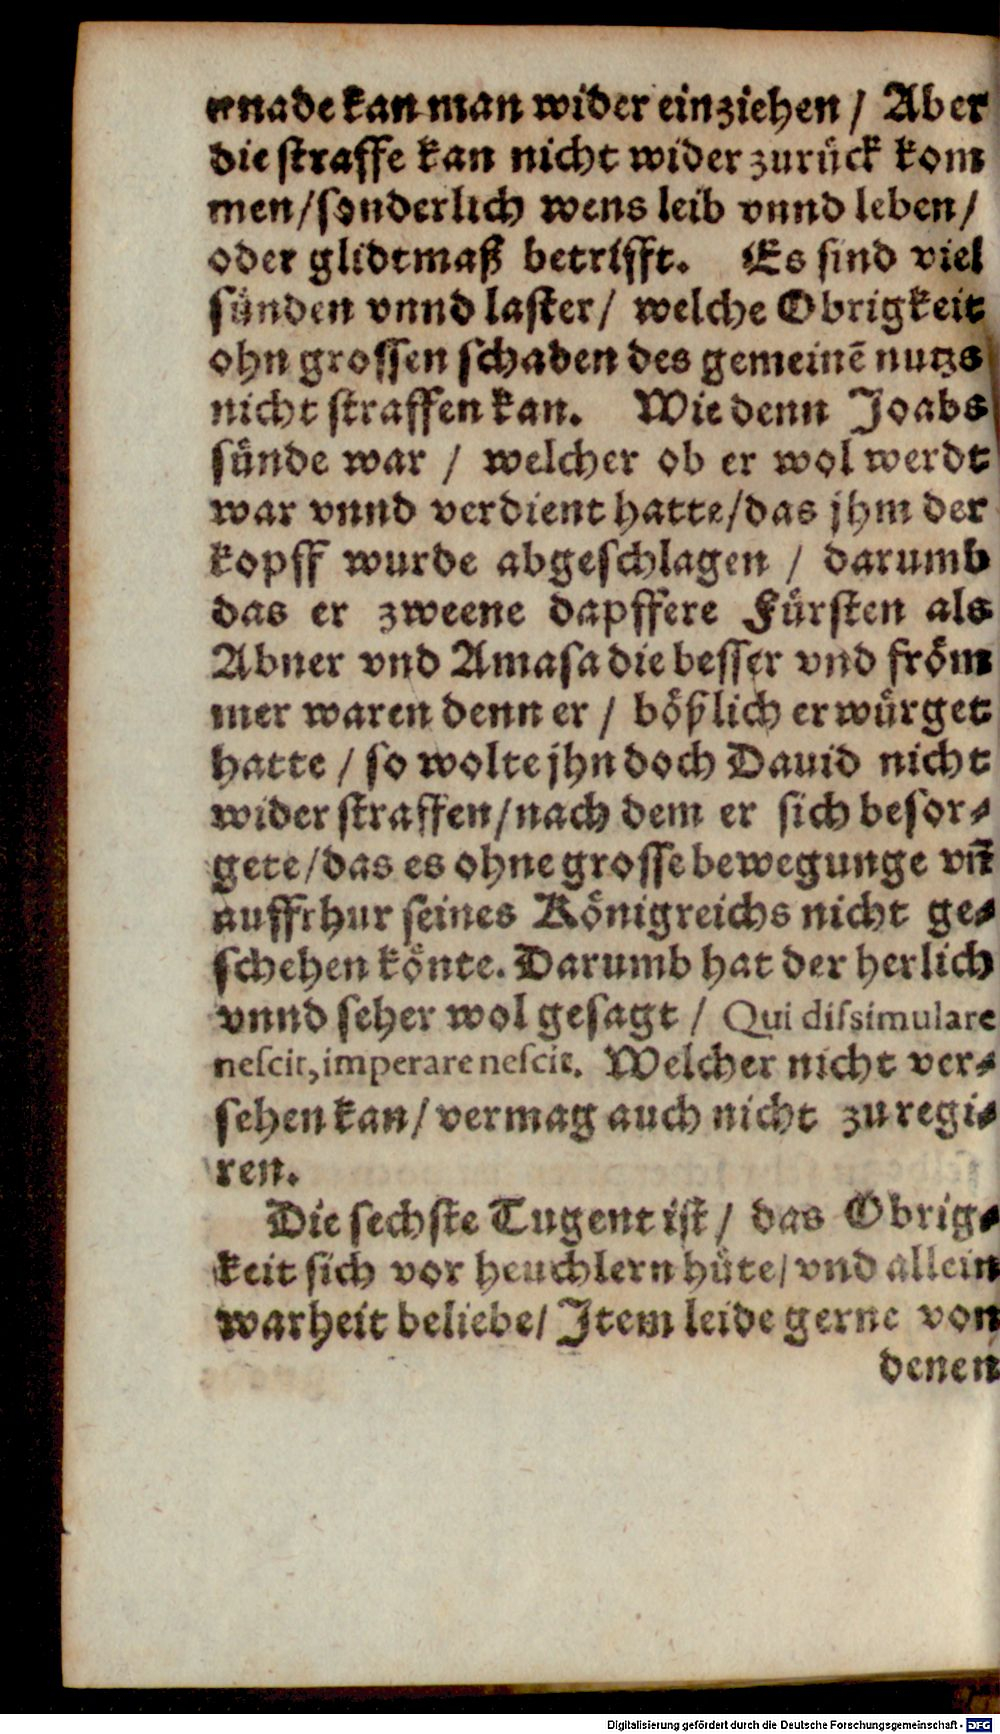 gnade kan man wider einziehen / Aber
die straffe kan nicht wider zurück kom
men / sonderlich wens leib vnnd leben /
oder glidtmaß betrifft. Es sind viel
sünden vnnd laster / welche Obrigkeit
ohn grossen schaden des gemeinē nutzs
nicht straffen kan. Wie denn Joabs
sünde war / welcher ob er wol werdt
war vnnd verdient hatte / das jhm der
kopff wurde abgeschlagen / darumb
das er zweene dapffere Fürsten als
Abner vnd Amasa die besser vnd fröm
mer waren denn er / bößlich erwürget
hatte / so wolte jhn doch Dauid nicht
wider straffen / nach dem er sich besor⸗
gete / das es ohne grosse bewegunge vñ
auffrhur seines Königreichs nicht ge⸗
schehen könte. Darumb hat der herlich
vnnd seher wol gesagt / Qui diſsimulare
neſcit, imperare neſcit. Welcher nicht ver⸗
sehen kan / vermag auch nicht zu regi⸗
ren.
Die sechste Tugent ist / das Obrig⸗
keit sich vor heuchlern hüte / vnd allein
warheit beliebe / Jtem leide gerne von
denen
Digitalisierung gefördert durch die Deutsche Forschungsgemeinschaft - DFG